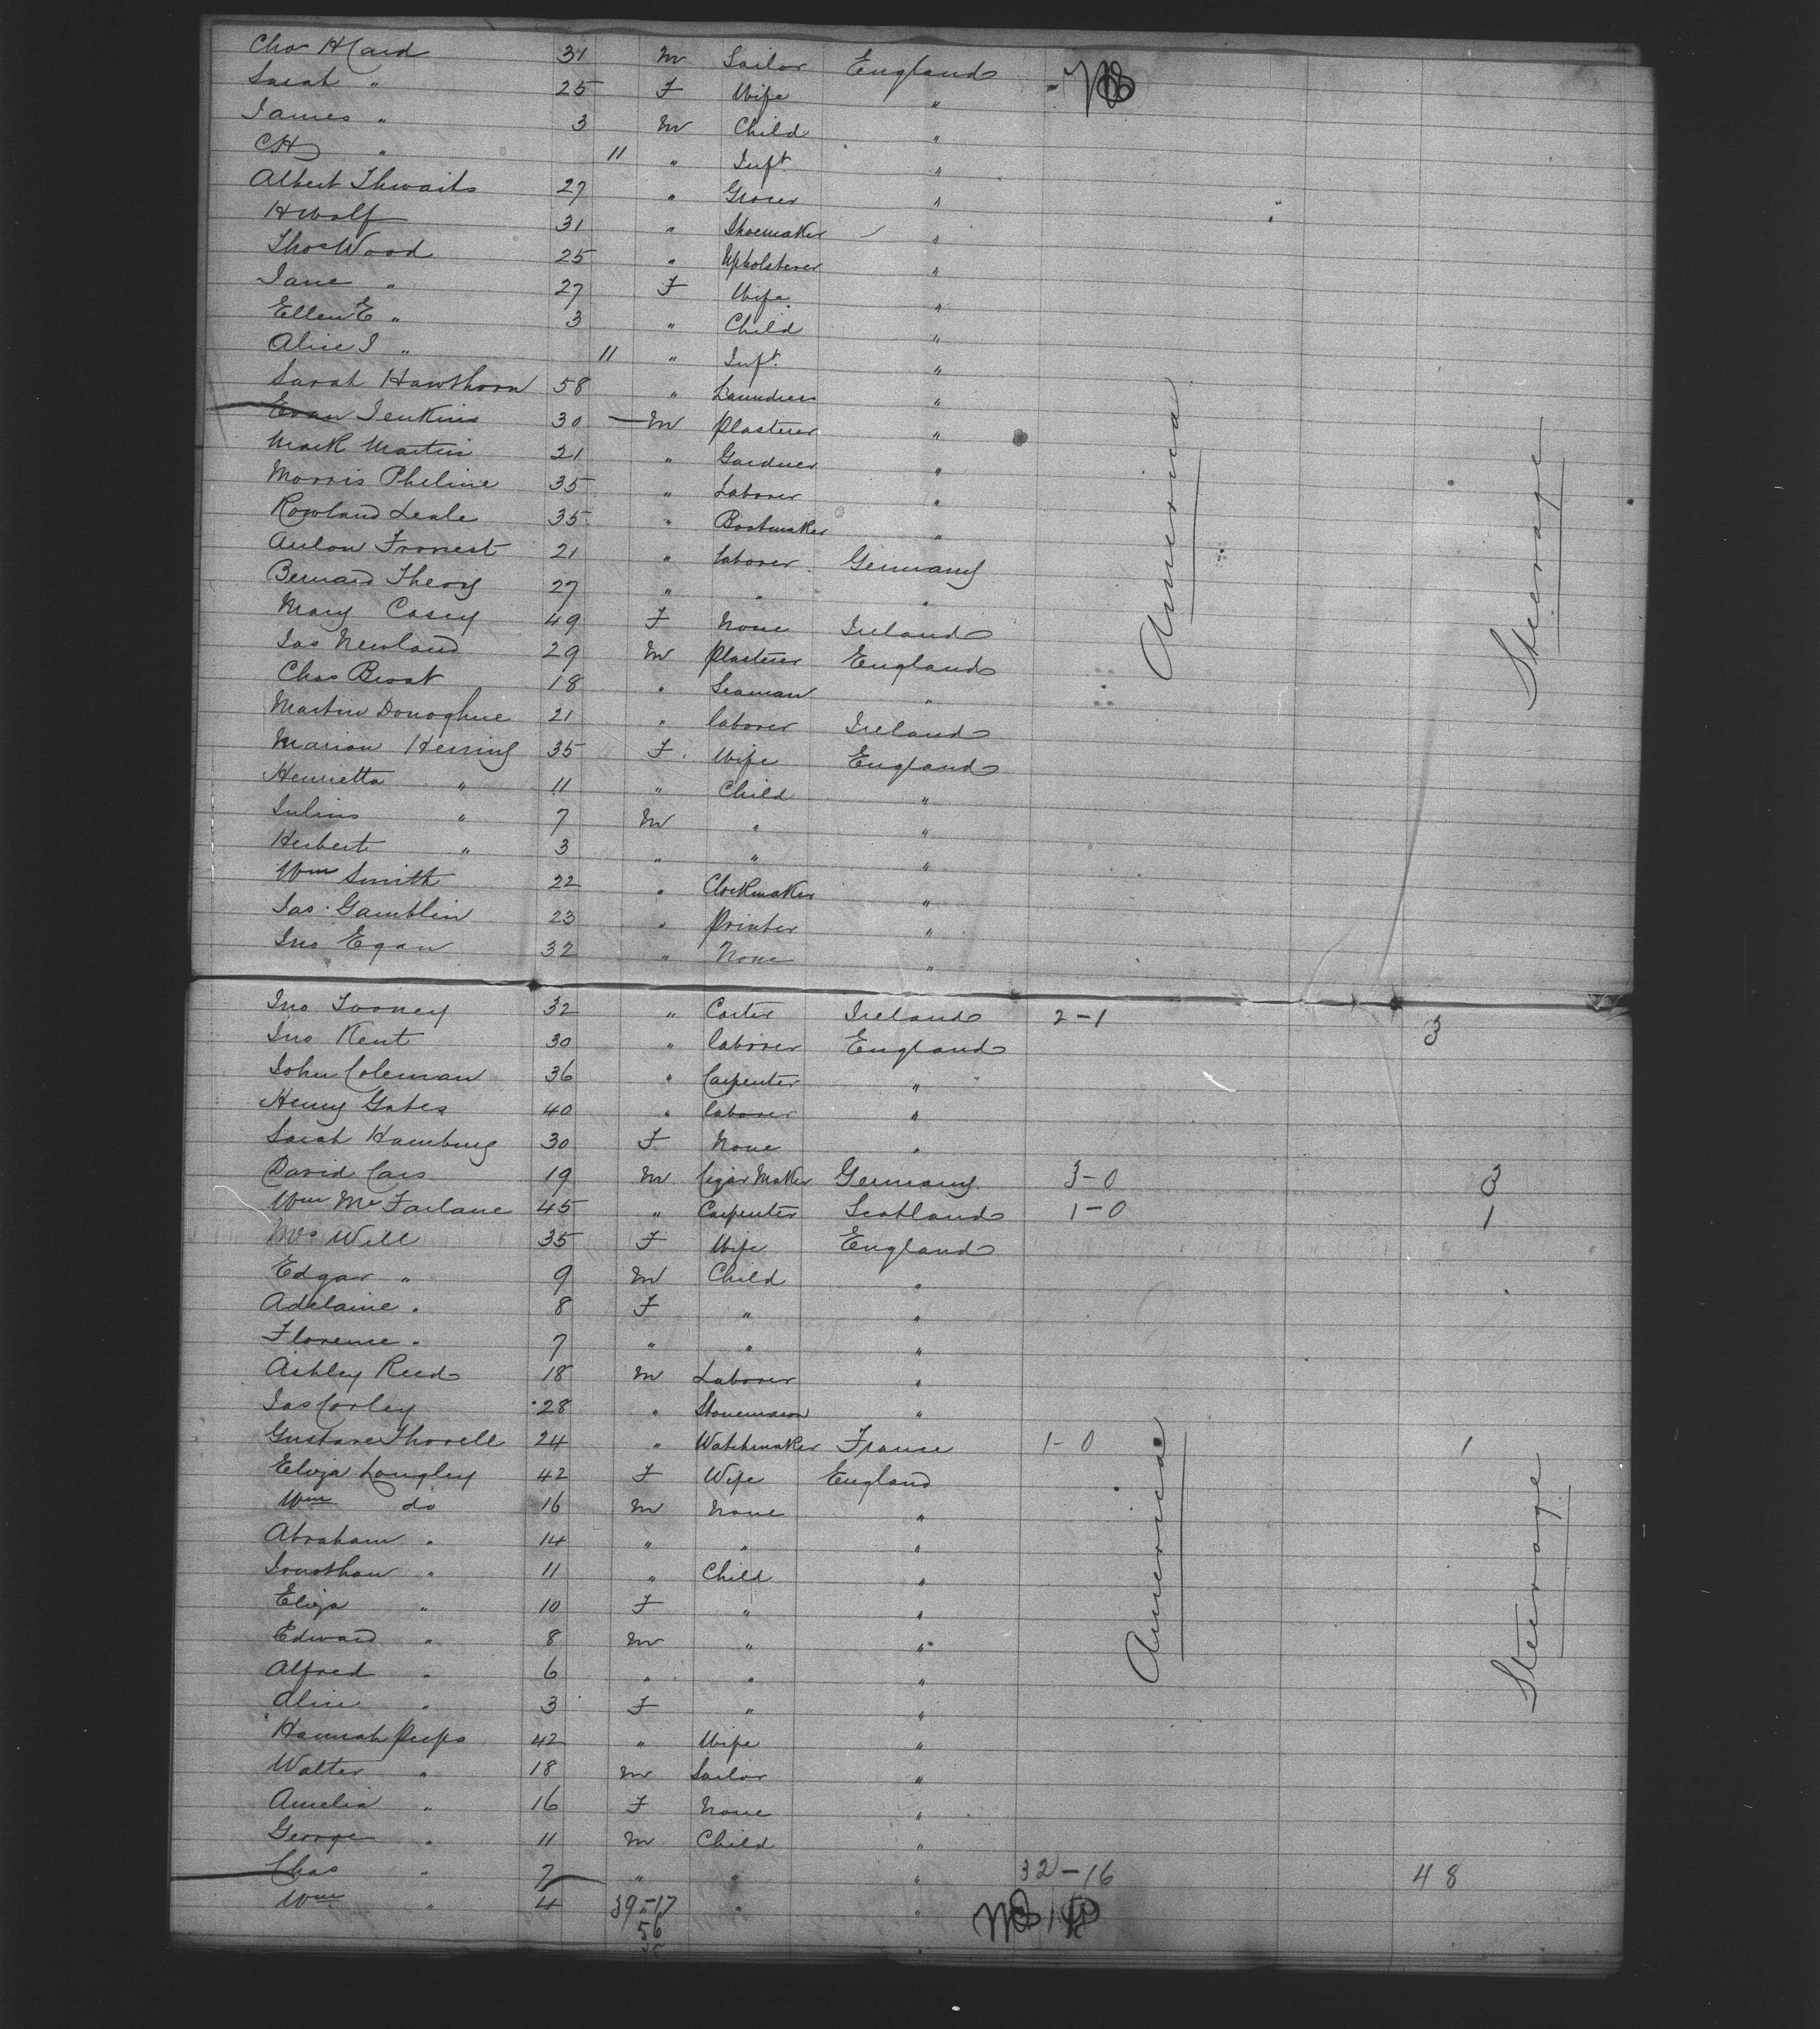 Chas Hard 31 M Sailor England
Sarah " 25 F Wife "
James " 3 M Child "
CH " 11 " Inft "
Albert Thwaits 27 " Grocer "
H Wolf 31 " Shoemaker "
Thos Wood 25 " Upholsterer "
Jane " 27 F Wife "
Ellen E " 3 " Child "
Alice J " 11 " Inft. "
Sarah Hawthorn 58 " Laundress "
Evan Jenkins 30 M Plasterer "
Mark Martin 21 " Gardner "
Morris Pheline 35 " Laborer "
Rowland Leale 35 " Bootmaker "
21 " Laborer Germany
Bernard 27 " " "
Mary Casey 49 F None Ireland
Jas Newland 29 M Plasterer England
Chas 18 " Seaman "
Martin Donoghue 21 " laborer Ireland
Marion Herring 35 F Wife England
Henrietta " 11 " Child "
Julius " 7 M " "
Herbert " 3 " " "
Wm Smith 22 " Clockmaker "
Jas. Gamblin 23 " Printer "
Jno Egan 32 " None "
America
Steerage
Jno Tooney 32 " Carter Ireland 2-1 3
Jno Kent 30 " laborer England
John Coleman 36 " Carpenter "
Henry Gates 40 " laborer "
Sarah Hamburg 30 F None "
David Cars 19 M Cigar Maker Germany 3-0 3
Wm McFarlane 45 " Carpenter Scotland 1-0 1
Mrs Will 35 F Wife England
Edgar " 9 M Child "
Adelaine " 8 F " "
Florence " 7 " " "
Ashley Reed 18 M Laborer "
Jas Corley 28 " Stonemason "
Gustave Thorell 24 " Watchmaker France 1-0 1
Eliza Longley 42 F Wife England
Wm do 16 M None "
Abraham " 14 " " "
Jonathan " 11 " Child "
Eliza " 10 F " "
Edward " 8 M " "
Alfred " 6 " " "
Alice " 3 F " "
Hannah Peeps 42 " Wife "
Walter " 18 M Sailor "
Amelia " 16 F None "
George " 11 M Child "
Chas " 7 " " " 32-16 48
Wm " 4 " " "
39-17
56
America
Steerage